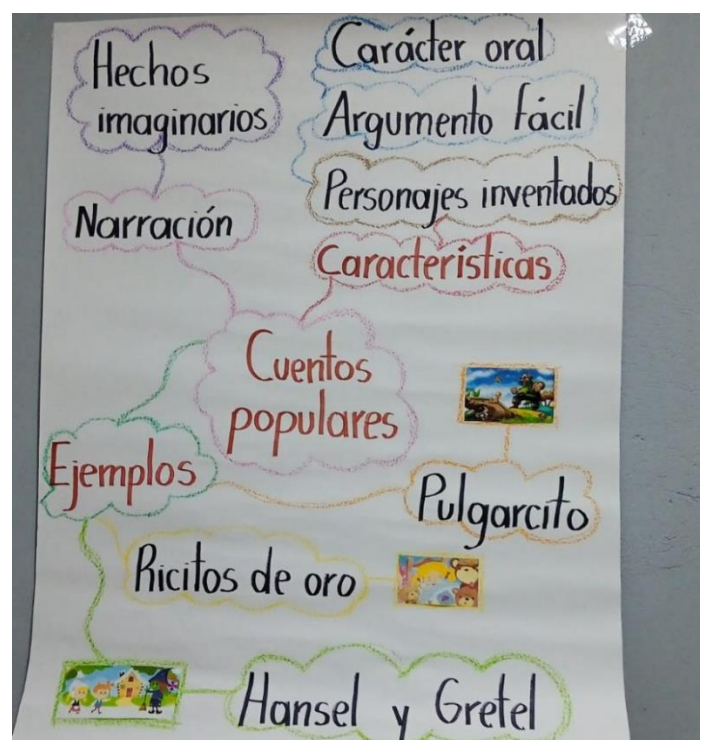 Hechos
imaginarios
Carácter oral
Argumento fácil
Personajes inventados
Narración
Características
Cuentos
populares
Ejemplos
Pulgarcito
Ricitos de oro
Hansel y Gretel